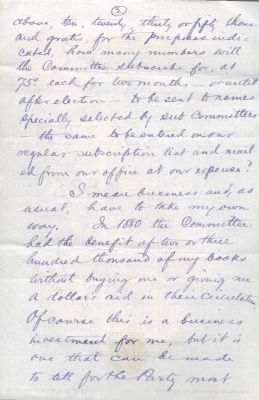 2
above, ten, twenty, thirty or fifty thous-
and gratis, for the purposes indi-
cated, how many numbers will
the Committee subscribe for, at
75c each for two months – or until
after election – to be sent to names
specially selected by sub Committees
– the same to be entered on our
regular subscription list and mail-
ed from our office at our expense?
I mean business and, as
usual, have to take my own
way. In 1880 the Committee
had the benefit of two or three
hundred thousand of my books
without buying one or giving me
a dollars aid in their circulation.
Of course this is a business
investment for me, but it is
one that can be made
to tell for the Party most